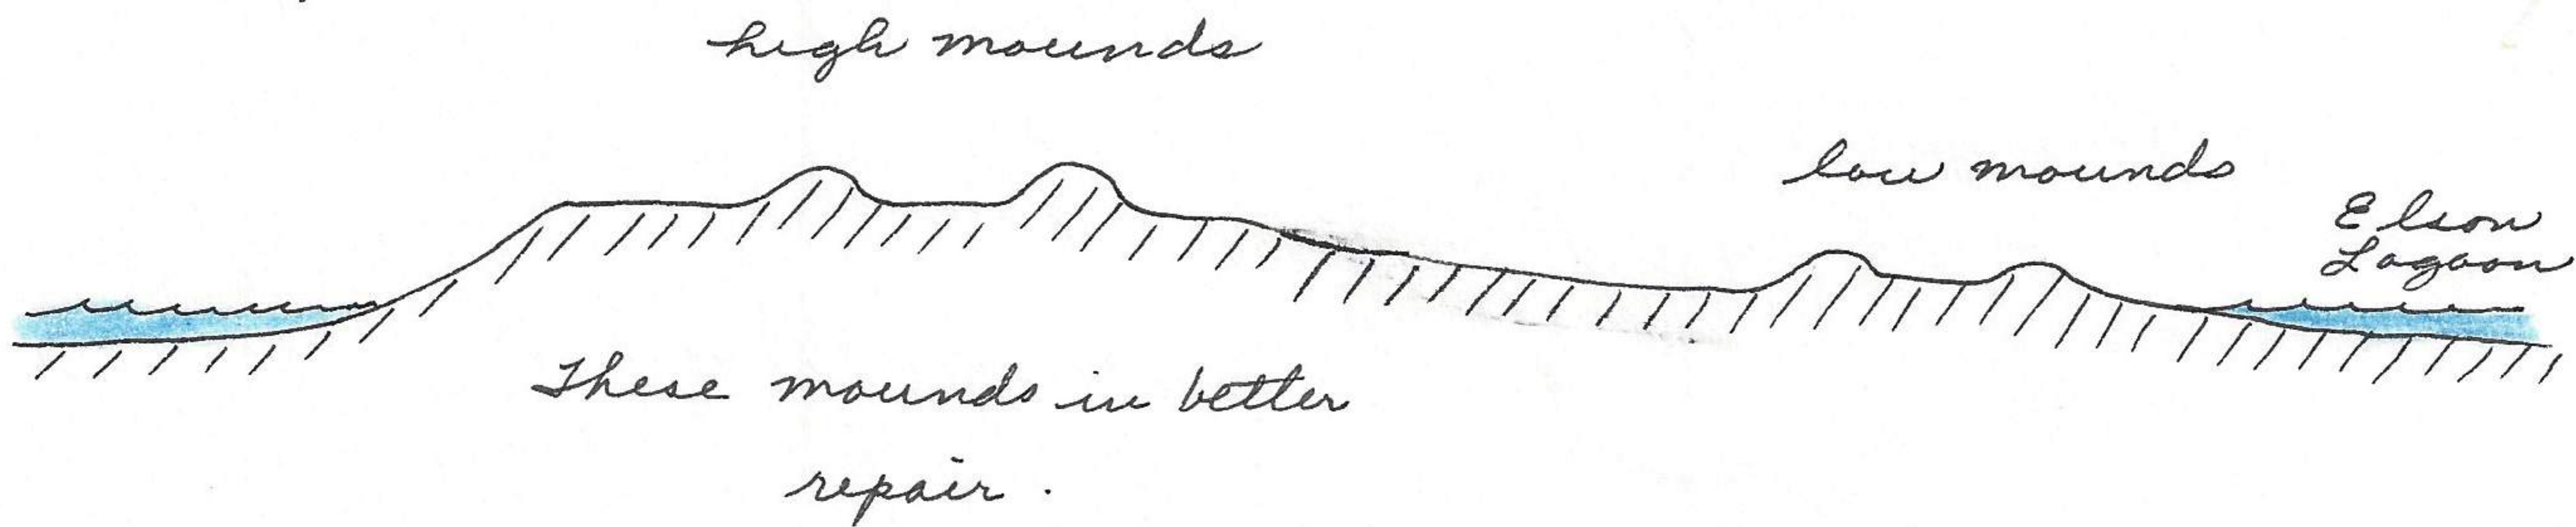 high mounds
low mounds
Elson
Lagoon
These mounds in better
repair.